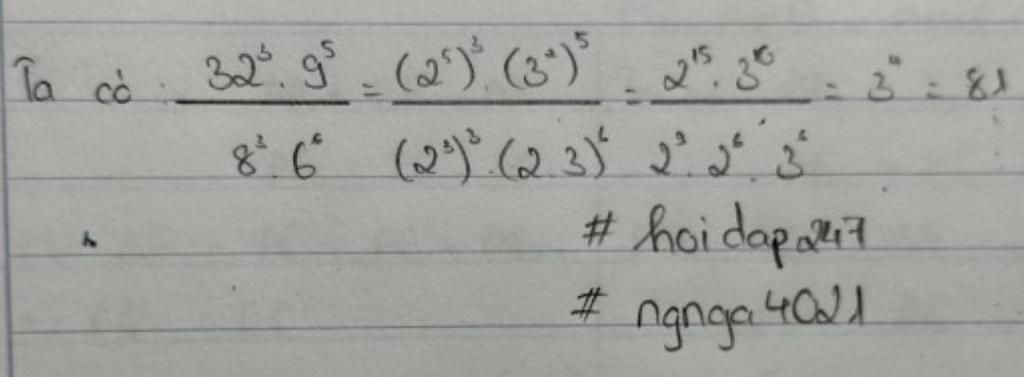 Ta có : \frac{32^3 . 9^5}{8^3 . 6^6} = \frac{(2^5)^3 . (3^2)^5}{(2^3)^3 . (2.3)^6} = \frac{2^{15} . 3^{10}}{2^9 . 2^6 . 3^6} = 3^4 = 81
# hoidap247
# ngnga4021